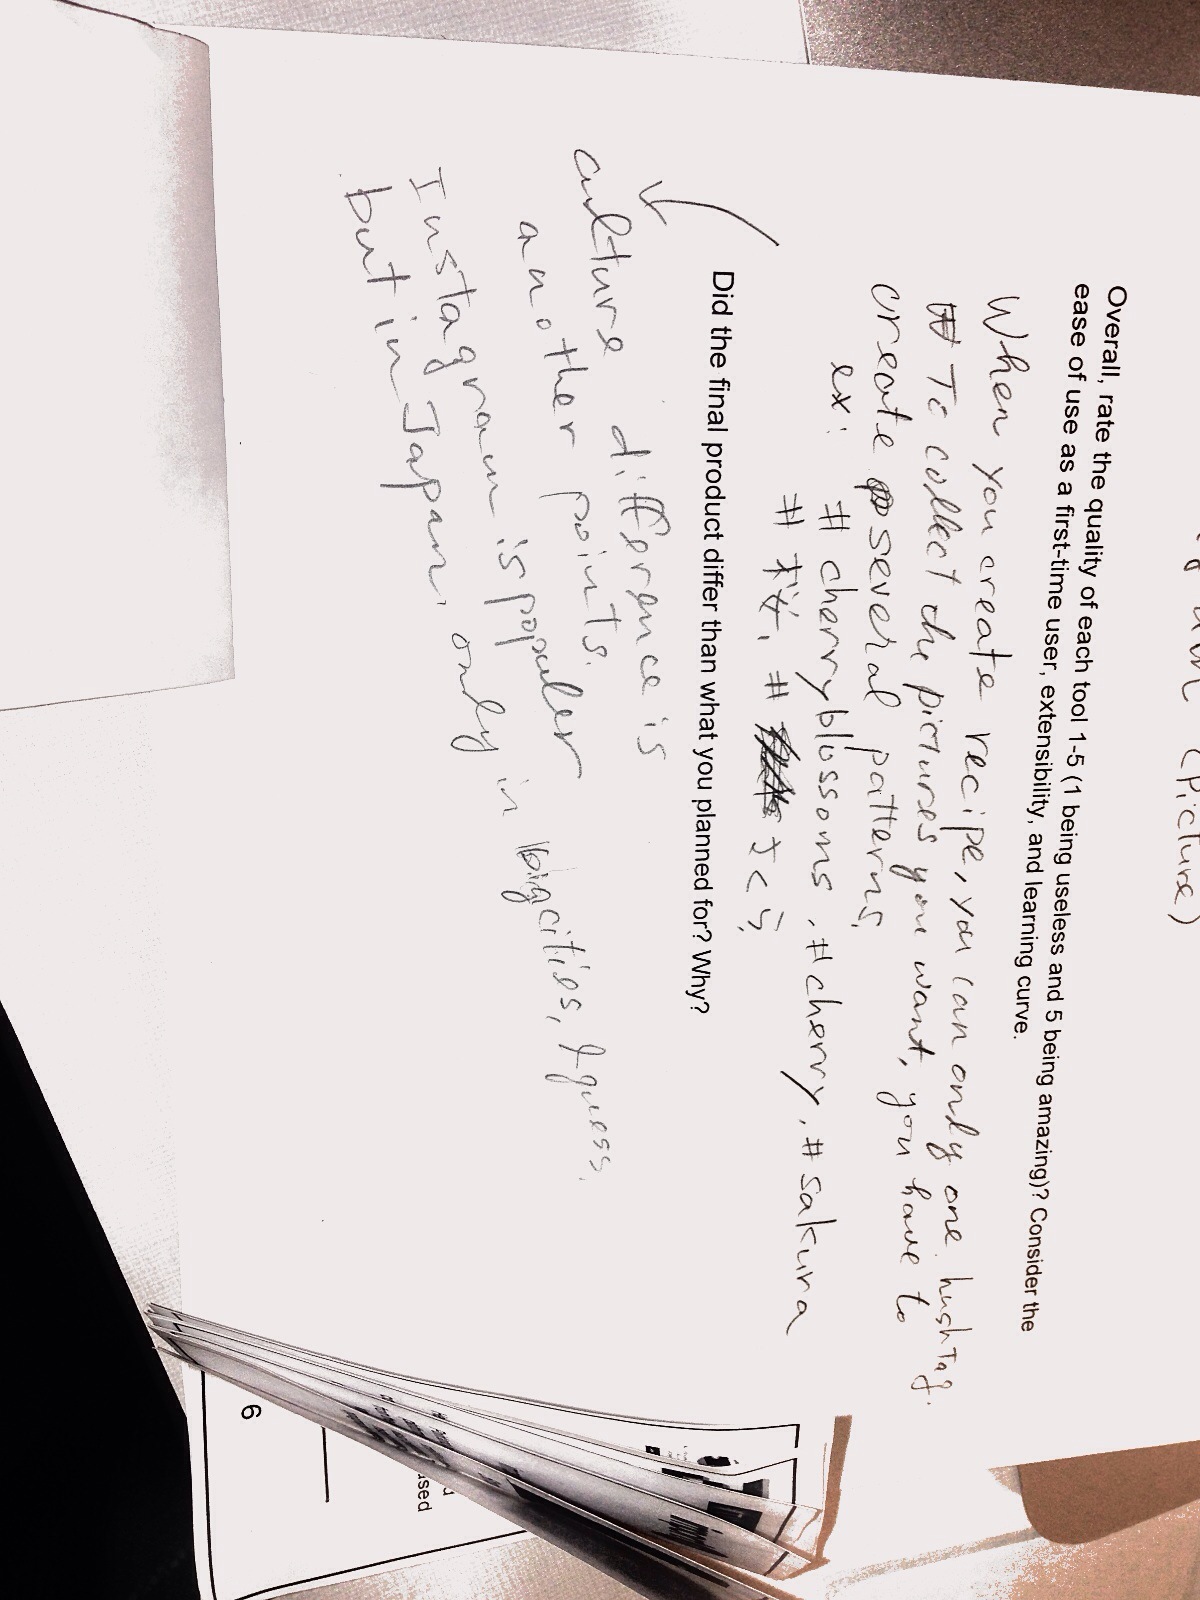 (Picture)
Overall, rate the quality of each tool 1-5 (1 being useless and 5 being amazing)? Consider the
ease of use as a first-time user, extensibility, and learning curve.
When you create recipe, you can only one hushtag.
To collect the pictures you want, you have to
create several patterns,
ex: # cherryblossoms, #cherry, #sakura
# 桜, # さくら
Did the final product differ than what you planned for? Why?
culture difference is
another points.
Instagram is populer
but in Japan, only in big cities, I guess.
used
6